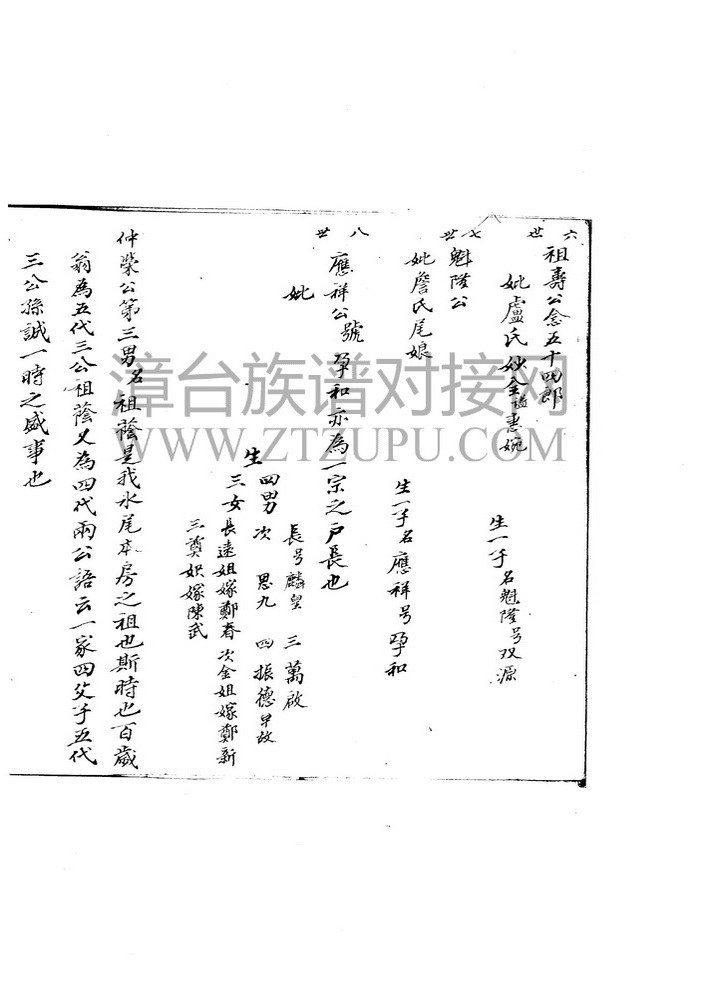 六世
祖壽公念五十四郎
妣盧氏妙金謚惠婉
生一子名魁隆号双源
七世
魁隆公
妣詹氏尾娘
生一子名應祥号孕和
八世
應祥公號孕和亦為一宗之戶長也
妣
生
四男 長号麟皇 次思九 三萬啟 四振德早故
三女長遠姐嫁鄭春 次金姐嫁鄭新
三奠娘嫁陳武
仲榮公第三男名祖蔭是我水尾本房之祖也斯時也百歲
翁為五代三公祖蔭又為四代兩公語云一家四父子五代
三公孫誠一時之盛事也
漳台族谱对接网
WWW.ZTZUPU.COM